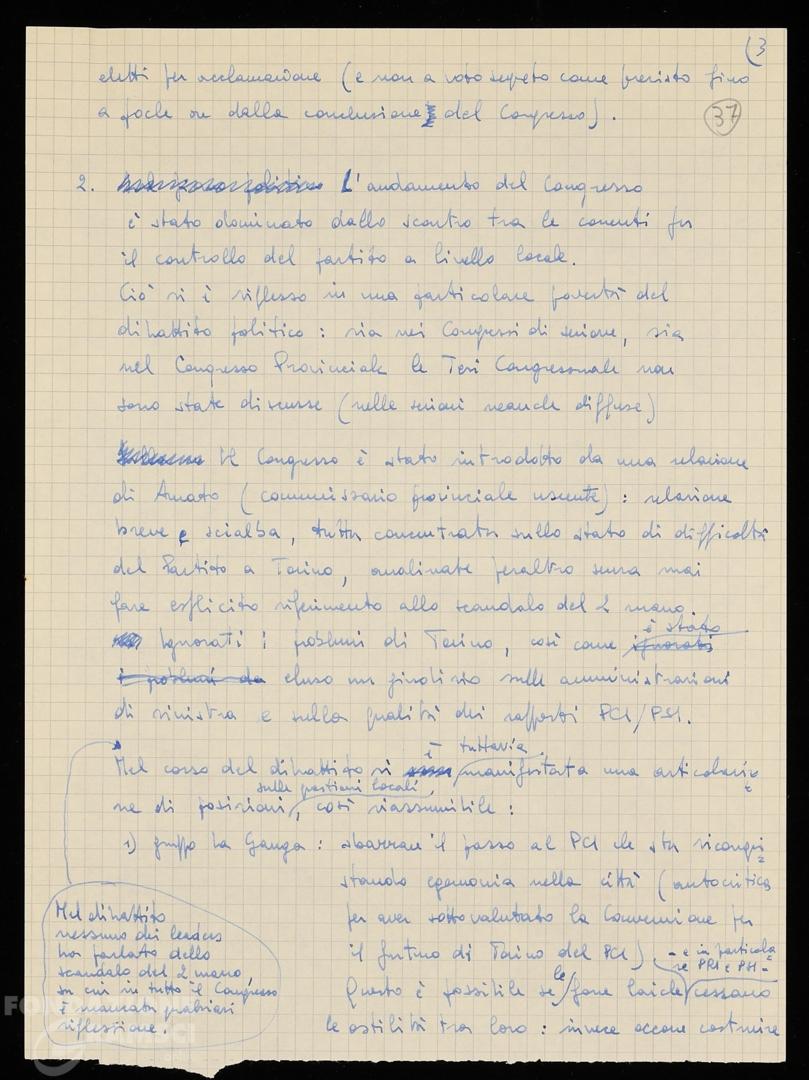 (3
eletti per acclamazione (e non a voto segreto come previsto fino
a poche ore dalla conclusione del Congresso).
37
2. L'andamento del Congresso
è stato dominato dallo scontro tra le correnti per
il controllo del partito a livello locale.
Ciò si è riflesso in una particolare povertà del
dibattito politico: sia nei Congressi di sezione, sia
nel Congresso Provinciale le Tesi Congressuale non
sono state discusse (nelle sezioni neanche diffuse)
Il Congresso è stato introdotto da una relazione
di Amato (commissario provinciale uscente): relazione
breve e scialba, tutta concentrata sullo stato di difficoltà
del Partito a Torino, analizzate peraltro senza mai
fare esplicito riferimento allo scandalo del 2 marzo.
Ignorati i problemi di Torino, così come è stato ignorati
i problemi da eluso un giudizio sulle amministrazioni
di sinistra e sulla qualità dei rapporti PCI/PSI.
Nel corso del dibattito si è tuttavia manifestata una articolazio
ne di posizioni sulle questioni locali, così riassumibile:
1) gruppo La Ganga: sbarrare il passo al PCI che sta riconqui
stando egemonia nella città (autocritica
per aver sottovalutato la Convenzione per
il futuro di Torino del PCI)
Questo è possibile se le forze laiche - e in particola
re PRI e PSI - cessano
le ostilità tra loro: invece occorre costruire
Nel dibattito
nessuno dei leaders
ha parlato dello
scandalo del 2 marzo,
su cui in tutto il Congresso
è mancata qualsiasi
riflessione.
FONDAZIONE
GRAMSCI